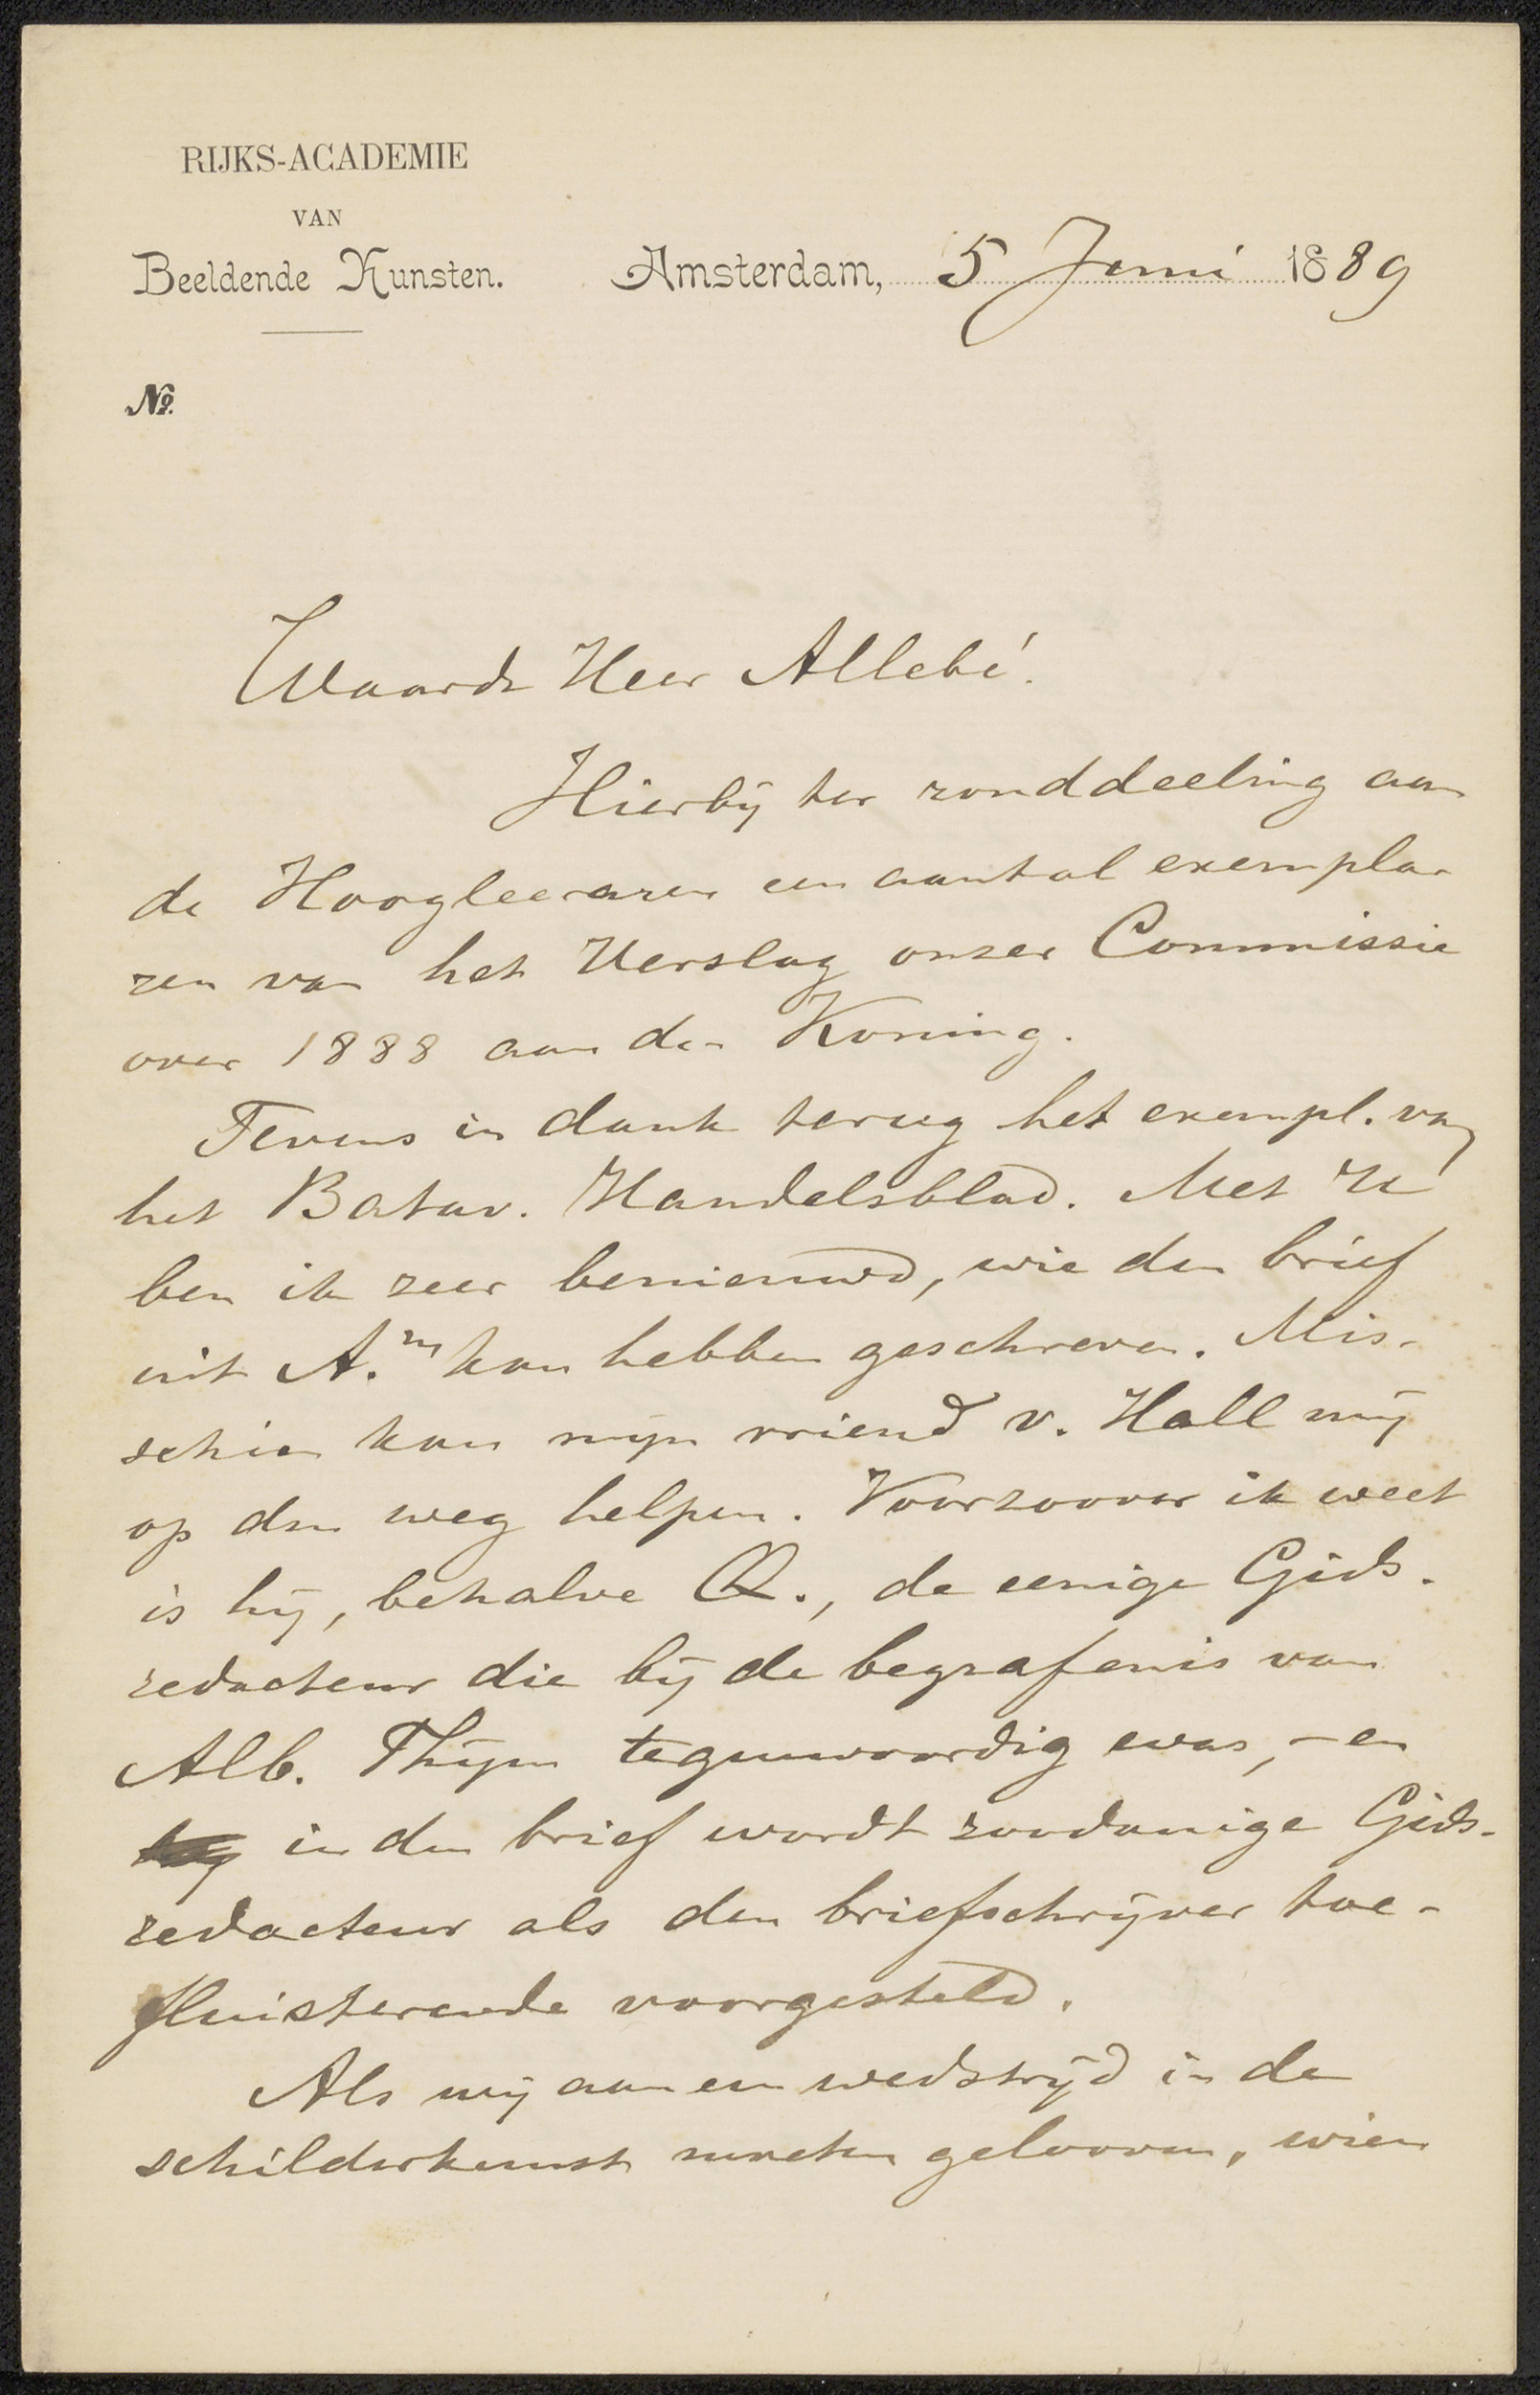 RIJKS-ACADEMIE
VAN
Beeldende Kunsten.
Amsterdam, 5 Juni 1889
No.
Waarde Heer Allebé!
Hierbij ter ronddeeling aan
de Hoogleeraren een aantal exempla-
ren van het Verslag onzer Commissie
over 1888 aan den Koning.
Tevens in dank terug het exempl. van
het Batav. Handelsblad. Met U
ben ik zeer benieuwd, wie den brief
uit A.m kan hebben geschreven. Mis-
schien kan mijn vriend v. Hall mij
op den weg helpen. Voorzoover ik weet
is hij, behalve Q., de eenige Gids-
redacteur die bij de begrafenis van
Alb. Thijm tegenwoordig was, – en
in den brief wordt zoodanige Gids-
redacteur als den briefschrijver toe-
fluisterende voorgesteld.
Als wij aan een wedstrijd in de
schilderkunst moeten gelooven, wien